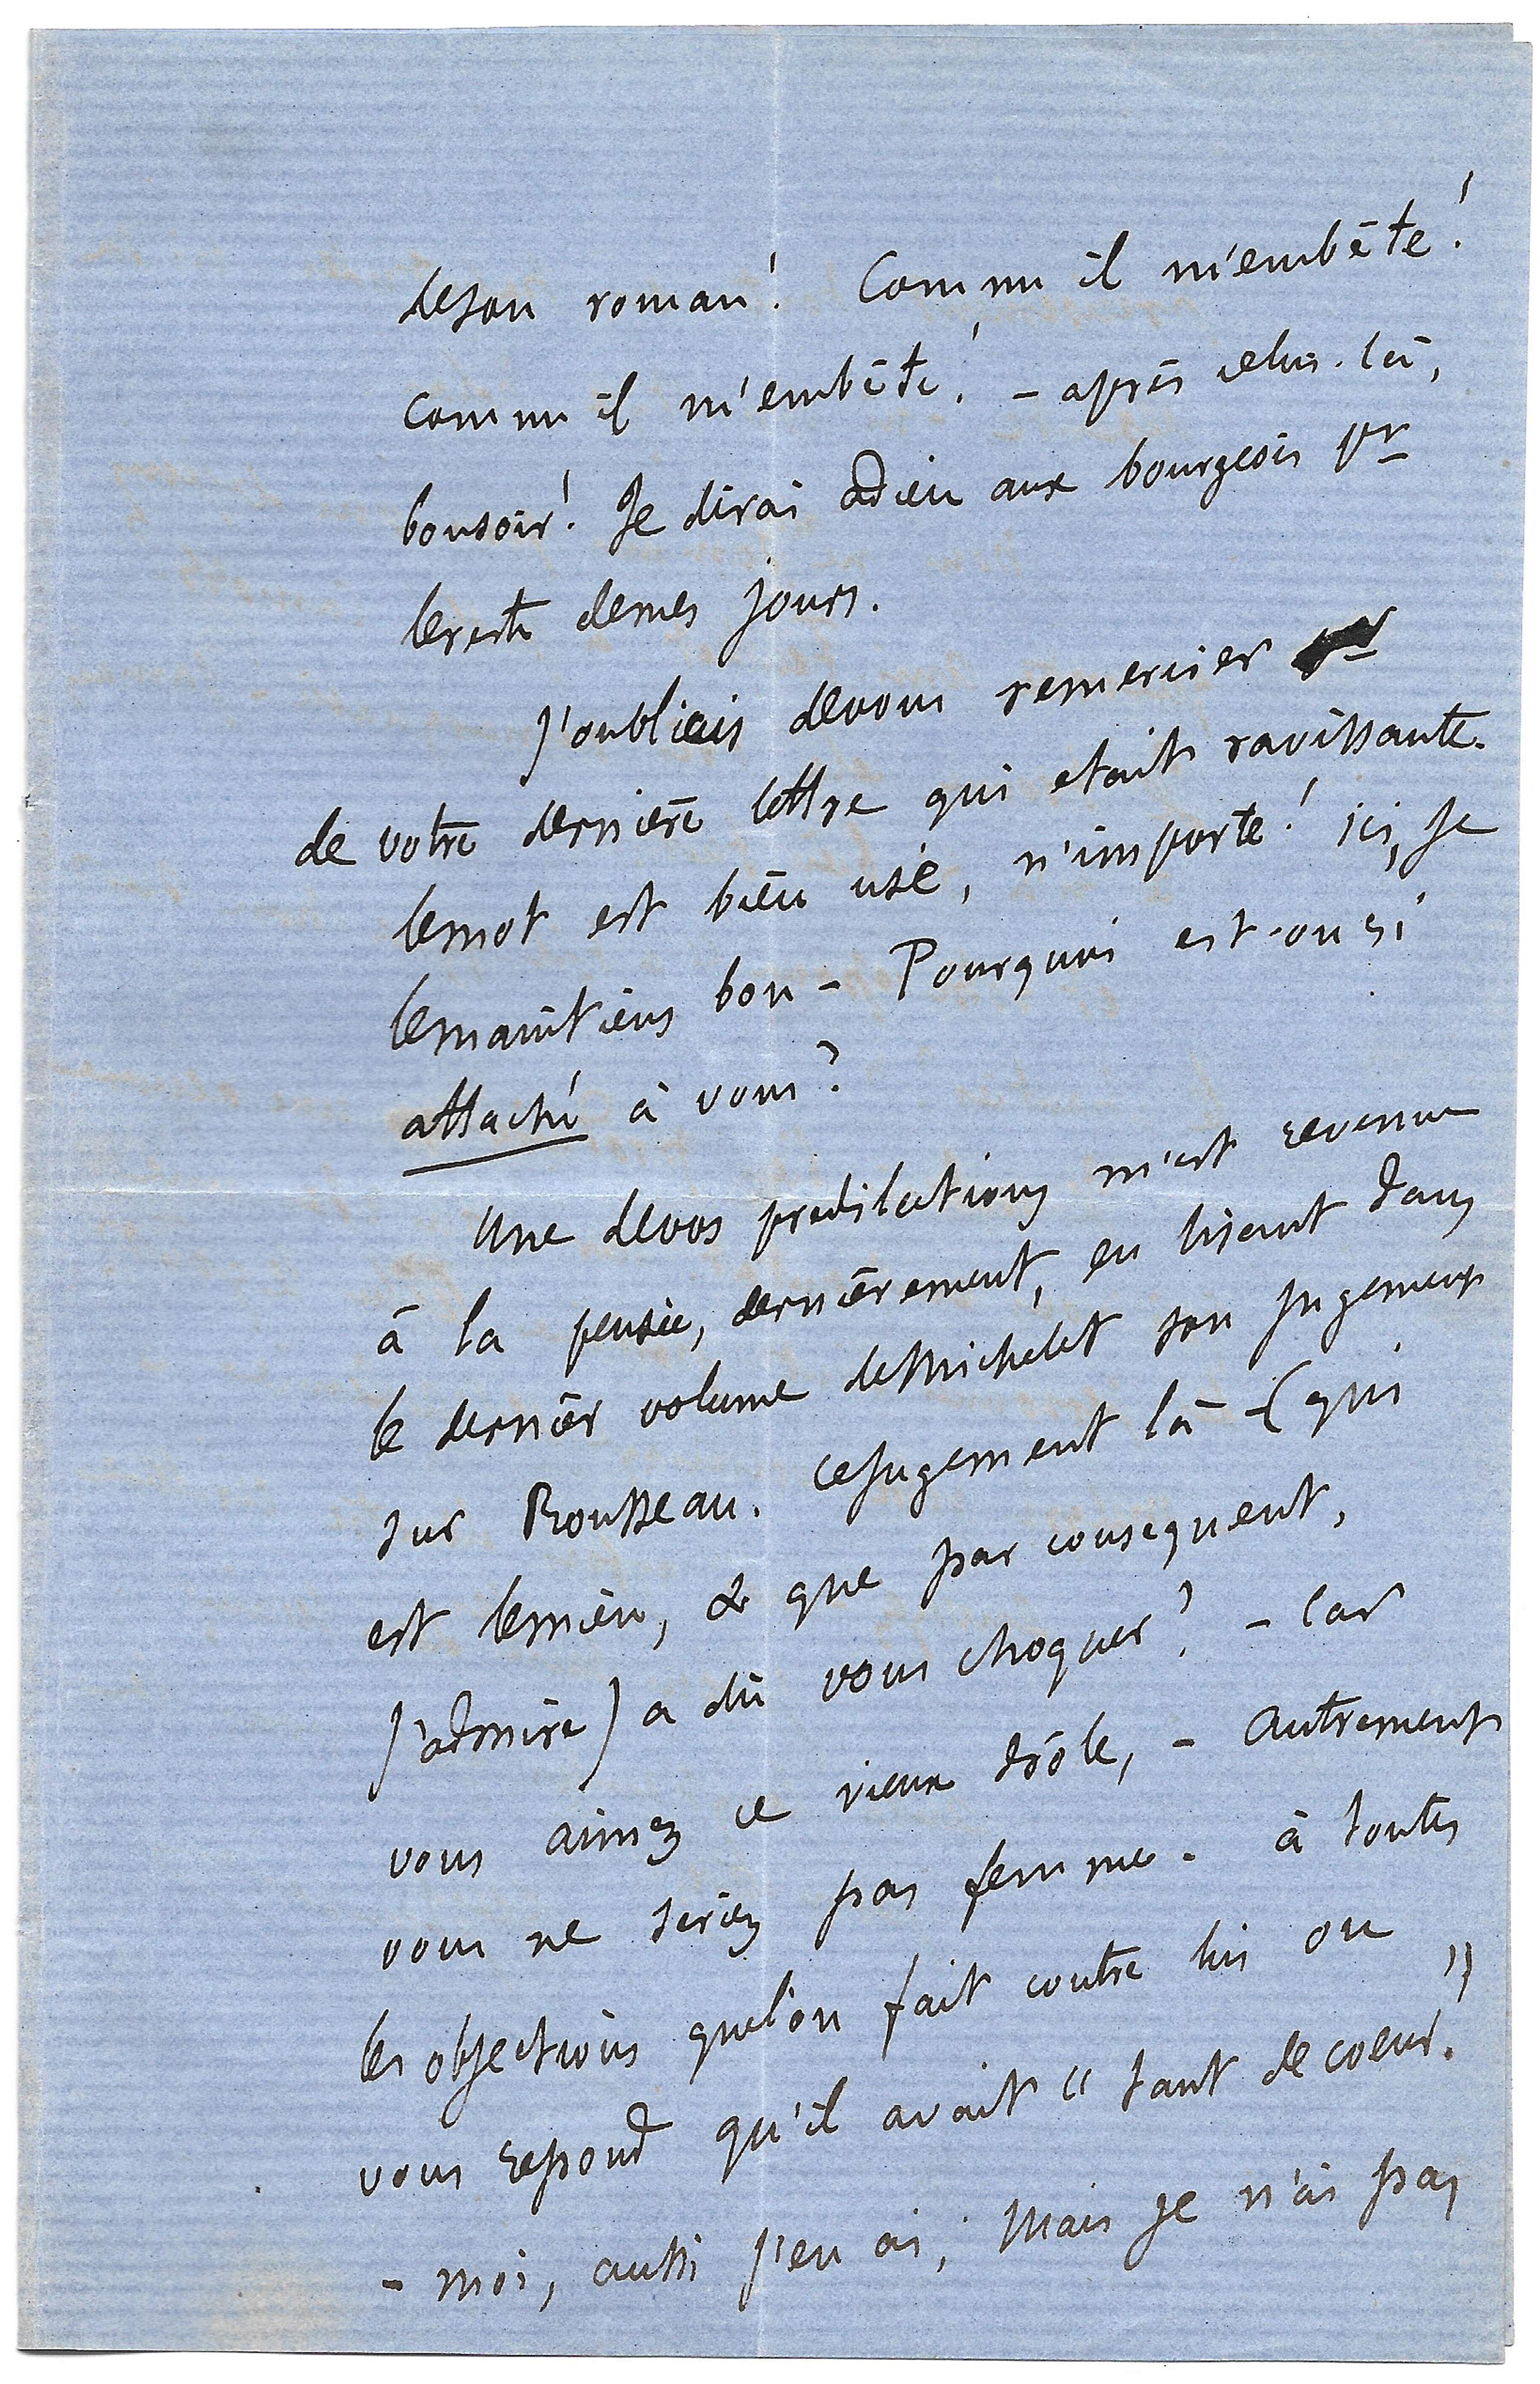 de son roman! Comme il m'embête!
comme il m'embête! - après celui-là,
bonsoir! Je dirai adieu aux bourgeois pr
le reste de mes jours.
J'oubliais de vous remercier
de votre dernière lettre qui etait ravissante.
le mot est bien usé, n'importe! ici, je
le maintiens bon - Pourquoi est-on si
attaché à vous?
Une de vos predilections m'est revenue
à la pensée, dernièrement, en lisant dans
le dernier volume de Michelet son jugement
sur Rousseau. ce jugement là - (qui
est le mien, & que par consequent,
j'admire) a dû vous choquer? - Car
vous aimez ce vieux drôle, - autrement
vous ne seriez pas femme. à toutes
les objections que l'on fait contre lui on
vous repond qu'il avait " tant de coeur. "
- moi, aussi j'en ai, mais je n'ai pas